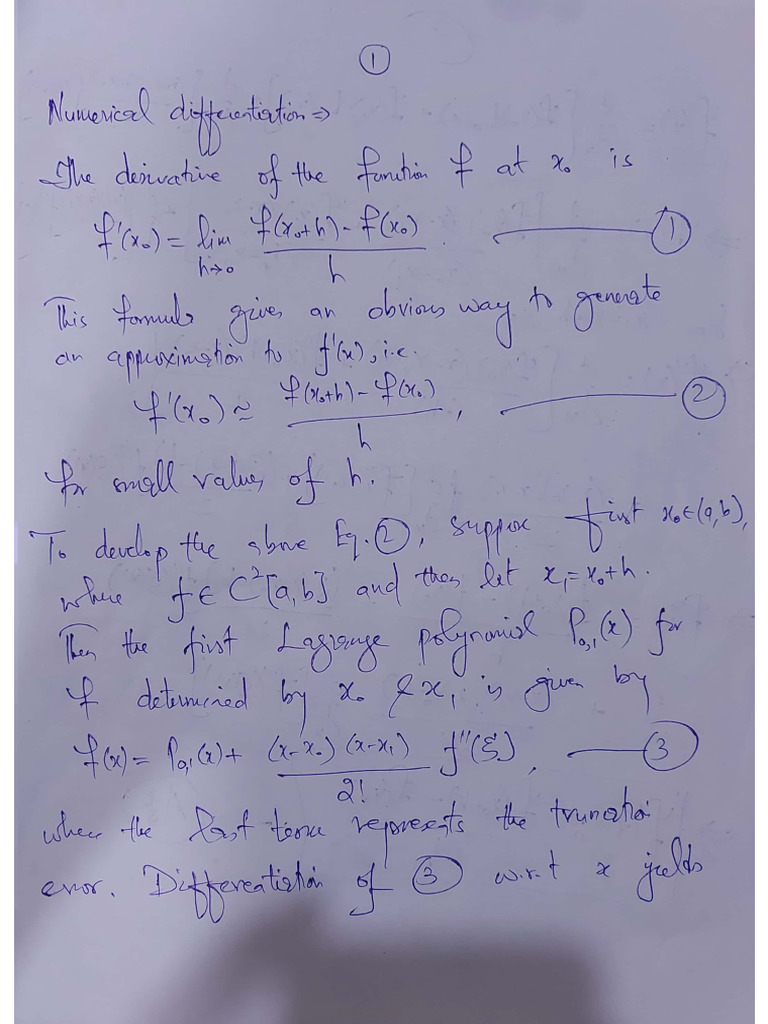 ①
Numerical differentiation ⇒
The derivative of the function f at x₀ is
f'(x₀) = lim h→0 (f(x₀+h) - f(x₀)) / h. ——— ①
This formula gives an obvious way to generate
an approximation to f'(x), i.e.
f'(x₀) ≈ (f(x₀+h) - f(x₀)) / h, ——— ②
for small values of h.
To develop the above Eq. ②, suppose first x₀ ∈ (a,b),
where f ∈ C²[a,b] and then let x₁ = x₀+h.
Then the first Lagrange polynomial P₀,₁(x) for
f determined by x₀ & x₁ is given by
f(x) = P₀,₁(x) + ((x-x₀)(x-x₁) / 2!) f''(ξ), ——— ③
where the last term represents the truncation
error. Differentiation of ③ w.r.t x yields